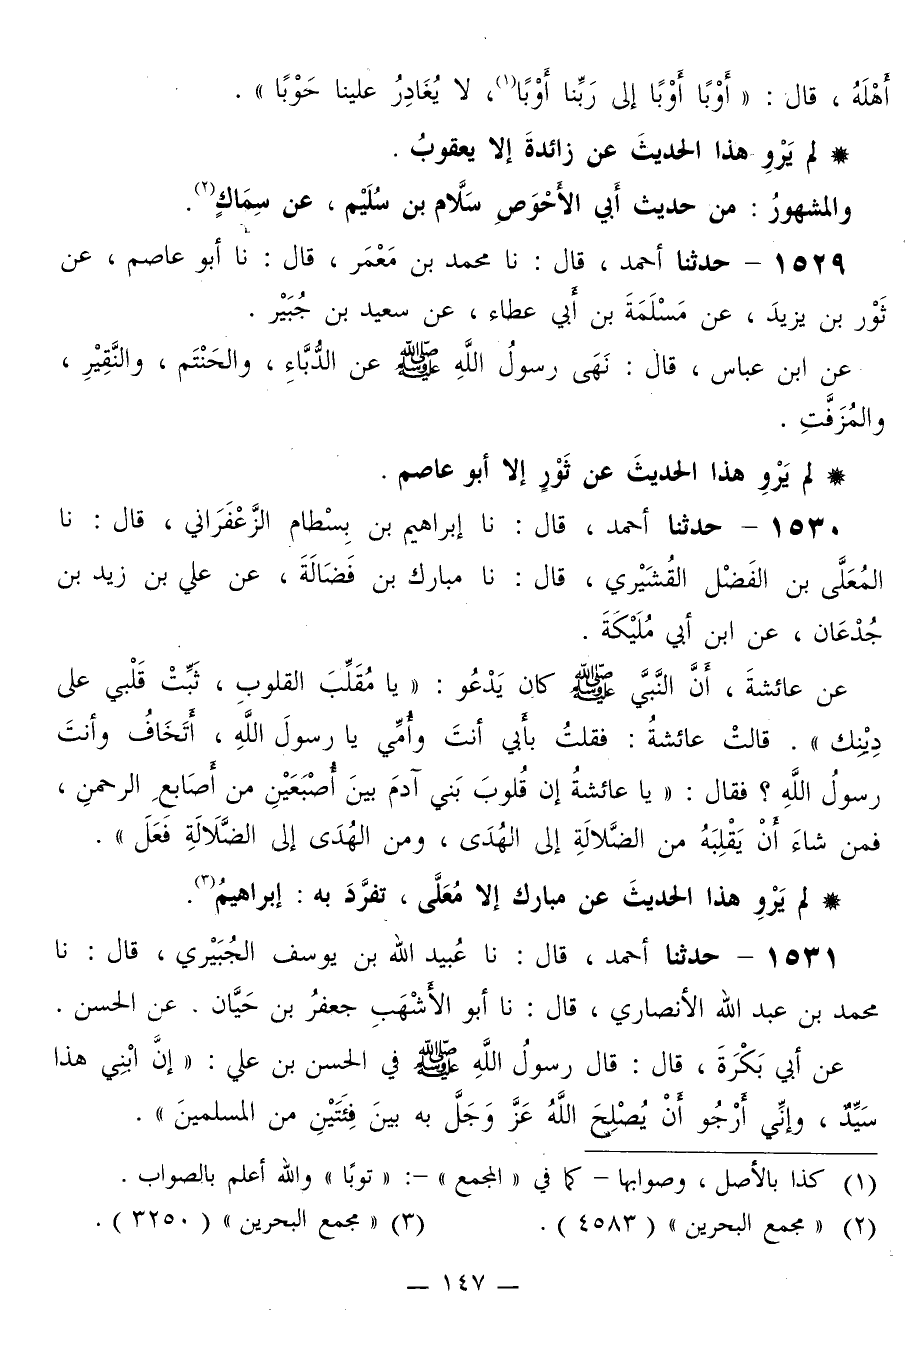 أَهْلَهُ ، قال : « أَوْبًا أَوْبًا إلى رَبِّنا أَوْبًا(١)، لا يُغَادِرُ علينا حَوْبًا » .
* لم يَرْوِ هذا الحديثَ عن زائدةَ إلا يعقوبُ .
والمشهورُ : من حديث أَبي الأَحْوَصِ سَلَّام بن سُلَيْم ، عن سِمَاكٍ(٢).
١٥٢٩ – حدثنا أحمد ، قال : نا محمد بن مَعْمَر ، قال : نا أبو عاصم ، عن
ثَوْر بن يزيدَ ، عن مَسْلَمَةَ بن أَبي عطاء ، عن سعيد بن جُبَيْر .
عن ابن عباس ، قال : نَهَى رسولُ اللَّهِ ﷺ عن الدُّبَّاءِ ، والحَنْتَم ، والنَّقِيْرِ ،
والمُزَفَّتِ .
* لم يَرْوِ هذا الحديثَ عن ثَوْرٍ إلا أبو عاصم .
١٥٣٠ – حدثنا أحمد ، قال : نا إبراهيم بن بِسْطام الزَّعْفَرَاني ، قال : نا
المُعَلَّى بن الفَضْل القُشَيْري ، قال : نا مبارك بن فَضَالَةَ ، عن علي بن زيد بن
جُدْعَان ، عن ابن أبي مُلَيْكَةَ .
عن عائشةَ ، أَنَّ النَّبيَّ ﷺ كان يَدْعُو : « يا مُقَلِّبَ القلوبِ ، ثَبِّتْ قَلْبي على
دِيْنِك » . قالتْ عائشةُ : فقلتُ بأَبي أنتَ وأُمِّي يا رسولَ اللَّهِ ، أَتَخَافُ وأنتَ
رسولُ اللَّهِ ؟ فقال : « يا عائشةُ إن قُلوبَ بَني آدمَ بينَ أُصْبَعَيْنِ من أَصَابعِ الرحمنِ ،
فمن شاءَ أَنْ يَقْلِبَهُ من الضَّلالَةِ إلى الهُدَى ، ومن الهُدَى إلى الضَّلَالَةِ فَعَلَ » .
* لم يَرْوِ هذا الحديثَ عن مبارك إلا مُعَلَّى ، تفرَّدَ به : إبراهيمُ(٣).
١٥٣١ – حدثنا أحمد ، قال : نا عُبيد الله بن يوسف الجُبَيْري ، قال : نا
محمد بن عبد الله الأنصاري ، قال : نا أبو الأَشْهَبِ جعفرُ بن حَيَّان . عن الحسن .
عن أبي بَكْرَةَ ، قال : قال رسولُ اللَّهِ ﷺ في الحسن بن علي : « إنَّ ابْنِي هذا
سَيِّدٌ ، وإنِّي أَرْجُو أَنْ يُصْلِحَ اللَّهُ عَزَّ وَجَلَّ به بينَ فِئَتَيْنِ من المسلمينَ » .
(١) كذا بالأصل ، وصوابها – كما في « المجمع » –: « توبًا » والله أعلم بالصواب .
(٢) « مجمع البحرين » ( ٤٥٨٣ ) . (٣) « مجمع البحرين » ( ٣٢٥٠ ) .
— ١٤٧ —